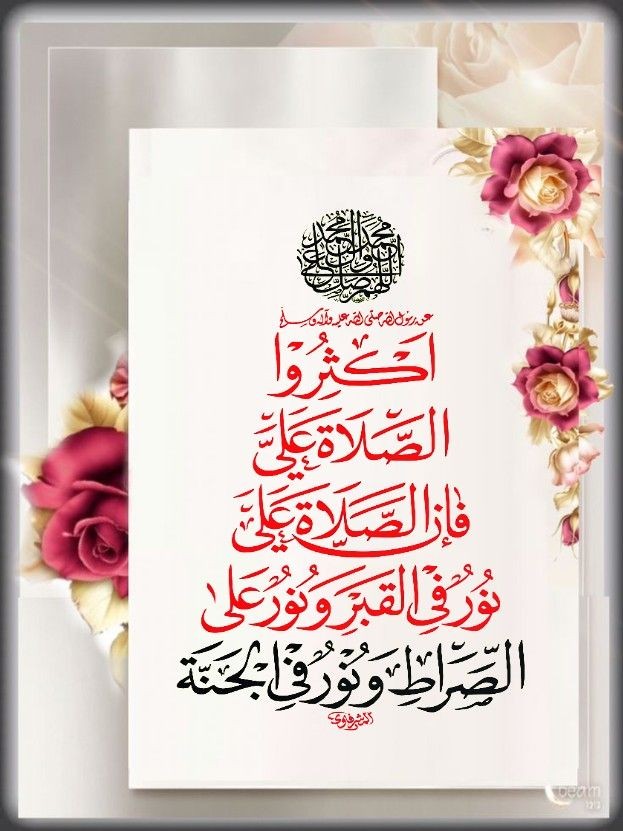 اللهم صل على محمد وآل محمد
عن رسول الله صلى الله عليه وآله وسلم
اَكثِرُوا
الصَّلَاةَ عَلَيَّ
فَإن الصَّلَاةَ عَلَيَّ
نُورٌ فِي القَبرِ وَنُورٌ عَلى
الصِّرَاطِ وَنُورٌ فِي الجَنَّة
المشرفاوي
beam